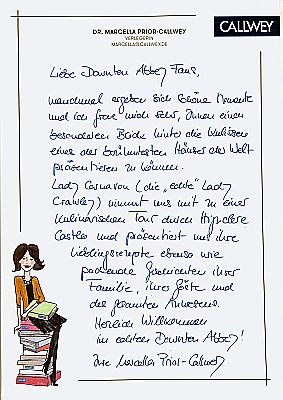 DR. MARCELLA PRIOR-CALLWEY
VERLEGERIN
MARCELLA@CALLWEY.DE
CALLWEY
Liebe Downton Abbey Fans,
manchmal ergeben sich schöne Momente
und ich freue mich sehr, Ihnen einen
besonderen Blick hinter die Kulissen
eines der berühmtesten Häuser der Welt
präsentieren zu können.
Lady Carnarvon (die „echte" Lady
Crawley) nimmt uns mit zu einer
kulinarischen Tour durch Highclere
Castle und präsentiert uns ihre
Lieblingsrezepte ebenso wie
packende Geschichten ihrer
Familie, ihrer Gäste und
des gesamten Anwesens.
Herzlich Willkommen
im echten Downton Abbey!
Ihre Marcella Prior-Callwey